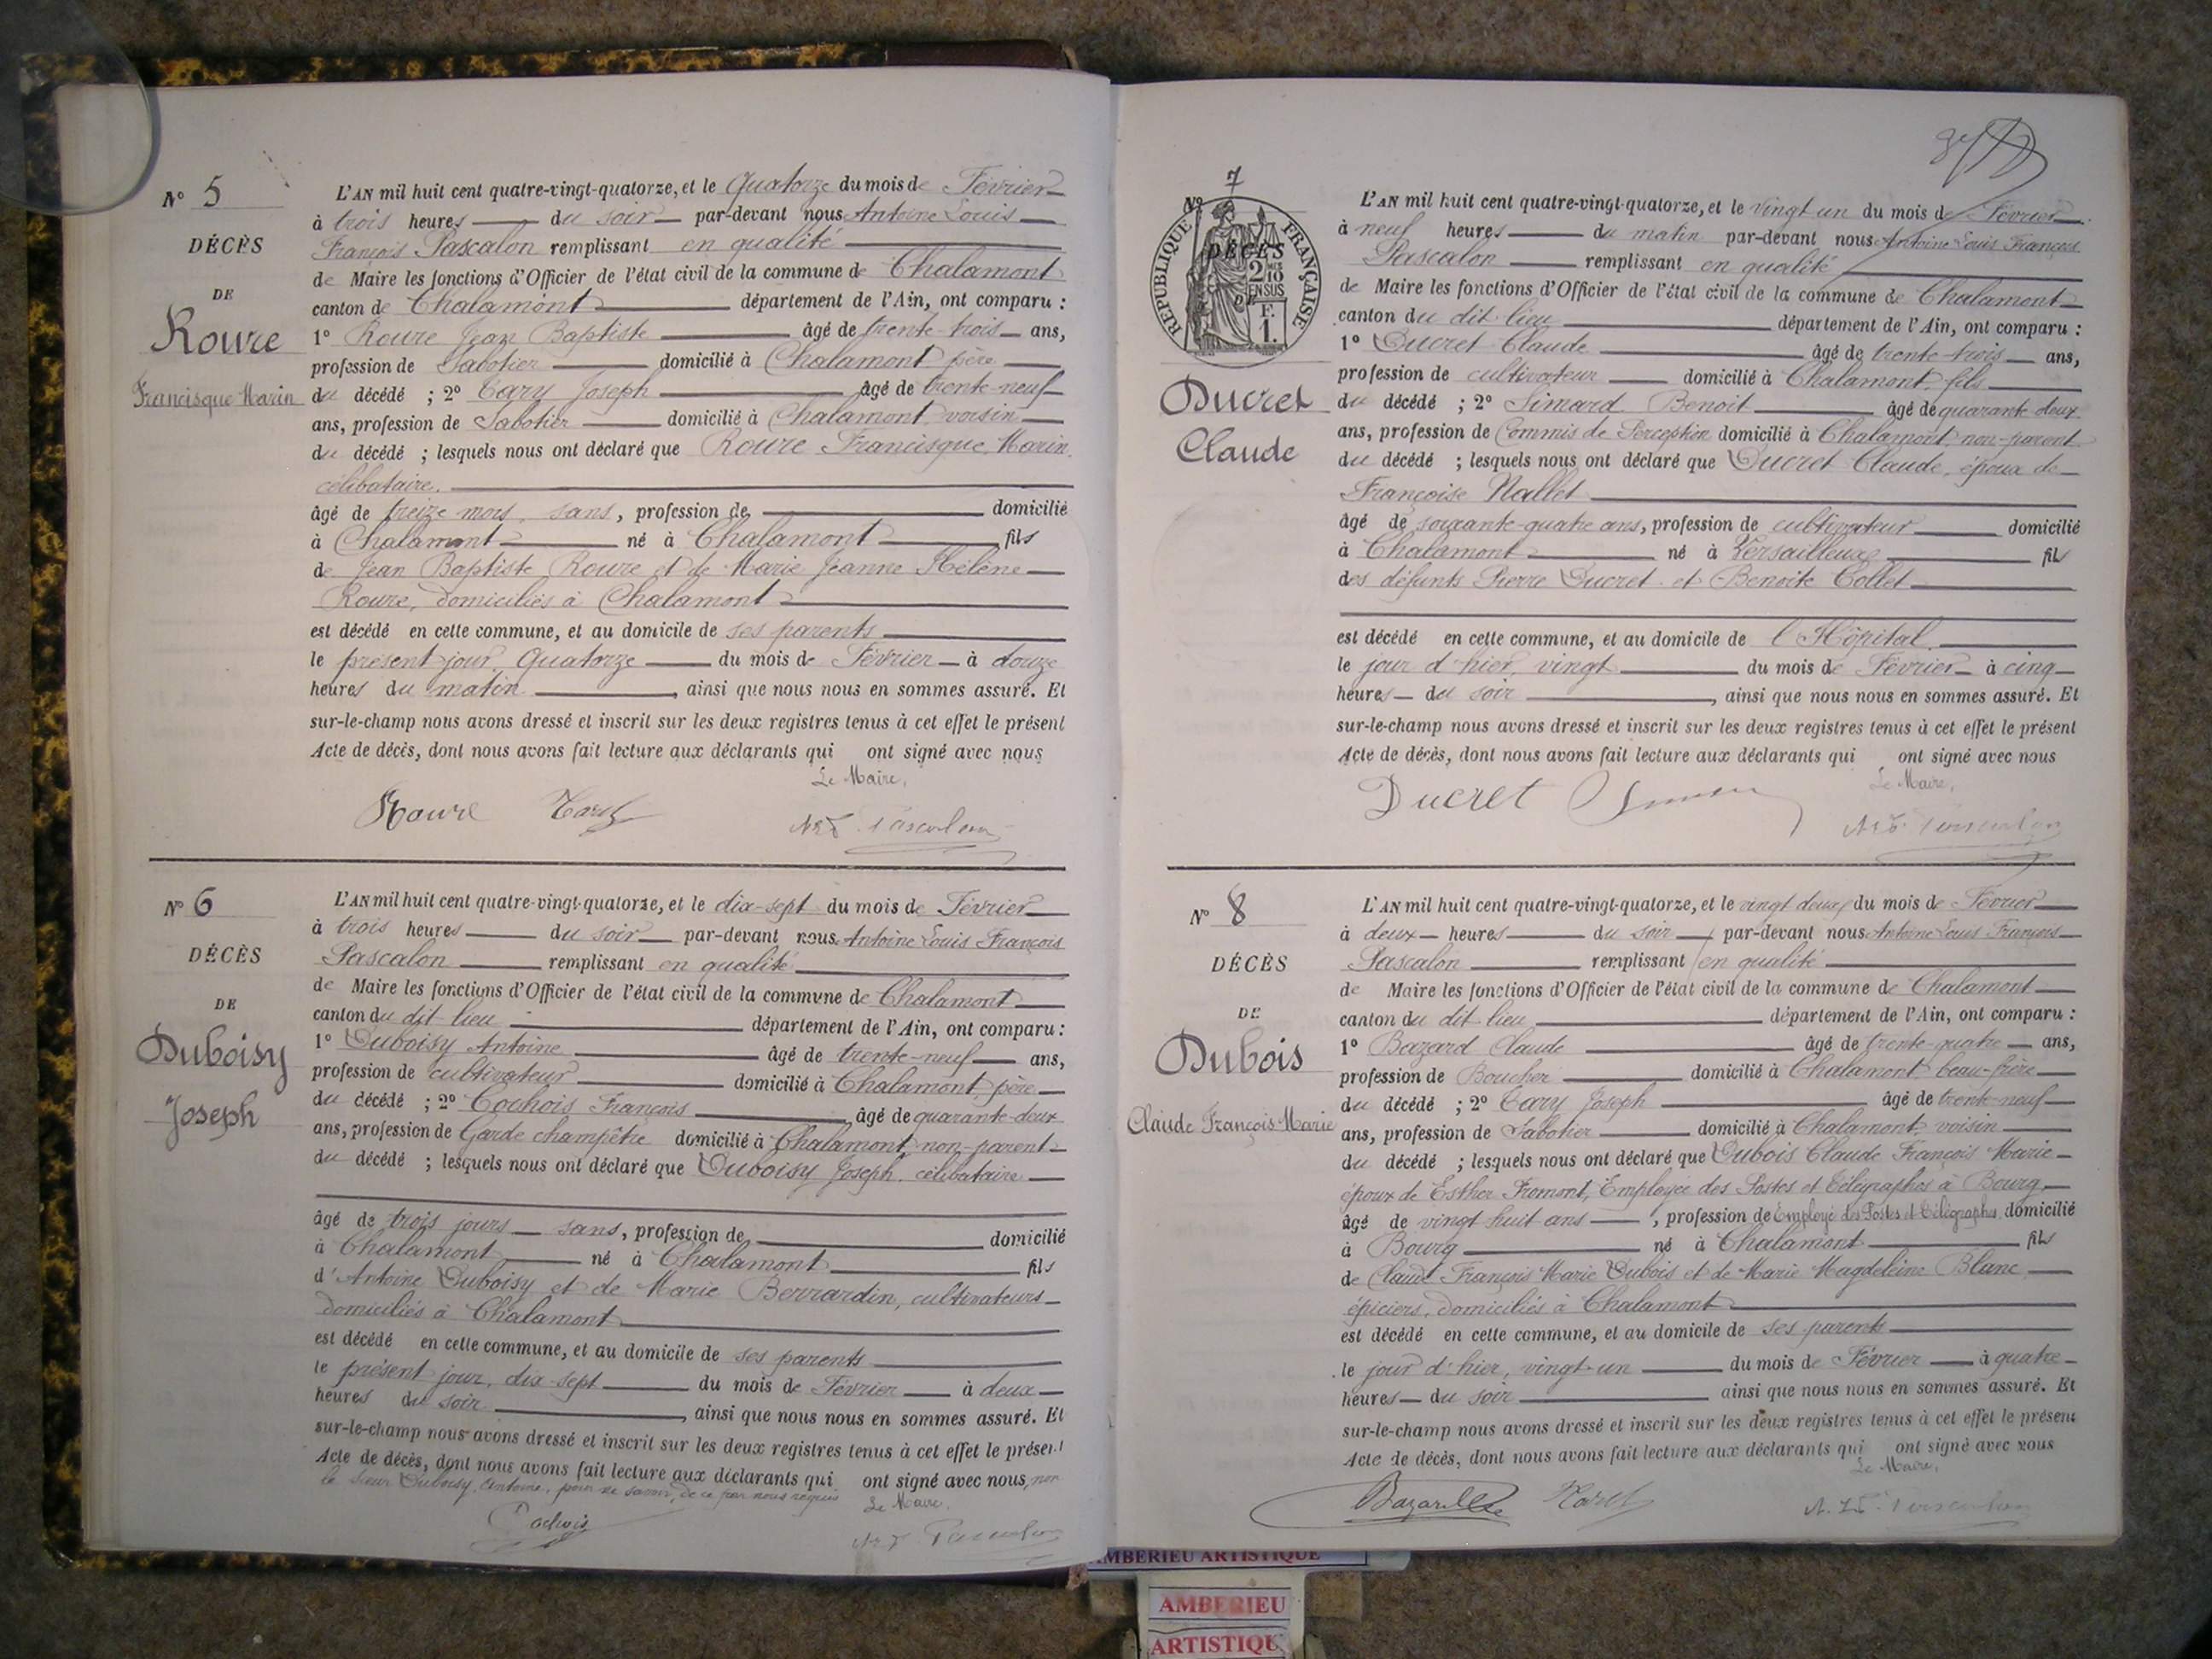 N° 5
DÉCÈS
DE
Roure
Francisque Marin
L'AN mil huit cent quatre-vingt-quatorze, et le Quatorze du mois de Février
à trois heures du soir par-devant nous Antoine Louis
François Pascalon remplissant en qualité
de Maire les fonctions d'Officier de l'état civil de la commune de Chalamont
canton de Chalamont département de l'Ain, ont comparu :
1° Roure Jean Baptiste âgé de trente-trois ans,
profession de Sabotier domicilié à Chalamont, père
du décédé ; 2° Tary Joseph âgé de trente-neuf
ans, profession de Sabotier domicilié à Chalamont, voisin
du décédé ; lesquels nous ont déclaré que Roure Francisque Marin,
célibataire.
âgé de treize mois, sans, profession de domicilié
à Chalamont né à Chalamont fils
de Jean Baptiste Roure et de Marie Jeanne Hélène
Roure, domiciliés à Chalamont
est décédé en cette commune, et au domicile de ses parents
le présent jour, Quatorze du mois de Février à douze
heures du matin, ainsi que nous nous en sommes assuré. Et
sur-le-champ nous avons dressé et inscrit sur les deux registres tenus à cet effet le présent
Acte de décès, dont nous avons fait lecture aux déclarants qui ont signé avec nous
Le Maire,
Roure
N° 6
DÉCÈS
DE
Duboisy
Joseph
L'AN mil huit cent quatre-vingt-quatorze, et le dix-sept du mois de Février
à trois heures du soir par-devant nous Antoine Louis François
Pascalon remplissant en qualité
de Maire les fonctions d'Officier de l'état civil de la commune de Chalamont
canton du dit lieu département de l'Ain, ont comparu :
1° Duboisy Antoine âgé de trente-neuf ans,
profession de cultivateur domicilié à Chalamont, père
du décédé ; 2° Cochois François âgé de quarante-deux
ans, profession de Garde champêtre domicilié à Chalamont, non-parent
du décédé ; lesquels nous ont déclaré que Duboisy Joseph, célibataire
âgé de trois jours sans, profession de domicilié
à Chalamont né à Chalamont fils
d'Antoine Duboisy et de Marie Berrardin, cultivateurs
domiciliés à Chalamont
est décédé en cette commune, et au domicile de ses parents
le présent jour, dix-sept du mois de Février à deux
heures du soir, ainsi que nous nous en sommes assuré. Et
sur-le-champ nous avons dressé et inscrit sur les deux registres tenus à cet effet le présent
Acte de décès, dont nous avons fait lecture aux déclarants qui ont signé avec nous, non
le sieur Duboisy, Antoine, pour ne savoir, de ce par nous requis
Le Maire,
Cochois
N° 7
RÉPUBLIQUE FRANÇAISE
2 10 EN SUS
F. 1.
DÉCÈS
DE
Ducret
Claude
L'AN mil huit cent quatre-vingt-quatorze, et le vingt un du mois de Février
à neuf heures du matin par-devant nous Antoine Louis François
Pascalon remplissant en qualité
de Maire les fonctions d'Officier de l'état civil de la commune de Chalamont
canton du dit lieu département de l'Ain, ont comparu :
1° Ducret Claude âgé de trente-trois ans,
profession de cultivateur domicilié à Chalamont, fils
du décédé ; 2° Simard Benoit âgé de quarante deux
ans, profession de Commis de Perception domicilié à Chalamont, non-parent
du décédé ; lesquels nous ont déclaré que Ducret Claude, époux de
Françoise Nallet
âgé de soixante-quatre ans, profession de cultivateur domicilié
à Chalamont né à Versailleux fils
des défunts Pierre Ducret et Benoite Collet
est décédé en cette commune, et au domicile de l'Hôpital
le jour d'hier, vingt du mois de Février à cinq
heures du soir, ainsi que nous nous en sommes assuré. Et
sur-le-champ nous avons dressé et inscrit sur les deux registres tenus à cet effet le présent
Acte de décès, dont nous avons fait lecture aux déclarants qui ont signé avec nous
Le Maire,
Ducret
N° 8
DÉCÈS
DE
Dubois
Claude François Marie
L'AN mil huit cent quatre-vingt-quatorze, et le vingt deux, du mois de Février
à deux heures du soir par-devant nous Antoine Louis François
Pascalon remplissant en qualité
de Maire les fonctions d'Officier de l'état civil de la commune de Chalamont
canton du dit lieu département de l'Ain, ont comparu :
1° Bazard Claude âgé de trente-quatre ans,
profession de Boucher domicilié à Chalamont beau-frère
du décédé ; 2° Tary Joseph âgé de trente-neuf
ans, profession de Sabotier domicilié à Chalamont, voisin
du décédé ; lesquels nous ont déclaré que Dubois Claude François Marie
époux de Esther Fromont, Employée des Postes et Télégraphes à Bourg
âgé de vingt huit ans, profession de Employé des Postes et Télégraphes domicilié
à Bourg né à Chalamont fils
de Claude François Marie Dubois et de Marie Magdeleine Blanc
épiciers, domiciliés à Chalamont
est décédé en cette commune, et au domicile de ses parents
le jour d'hier, vingt-un du mois de Février à quatre
heures du soir ainsi que nous nous en sommes assuré. Et
sur-le-champ nous avons dressé et inscrit sur les deux registres tenus à cet effet le présent
Acte de décès, dont nous avons fait lecture aux déclarants qui ont signé avec nous
Le Maire,
AMBERIEU ARTISTIQUE
AMBERIEU
ARTISTIQU